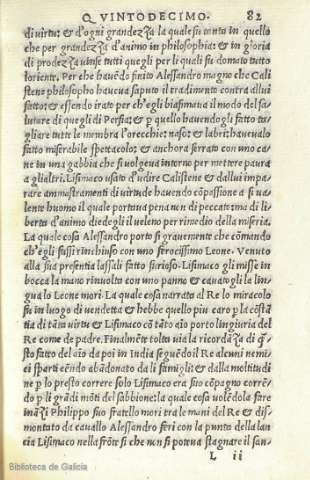 Q VINTODECIMO. 82
di virtu: & d'ogni grandezza la quale fu tanto in quello
che per grandezza d'animo in philosophia: & in gloria
di prodezza vinse tutti quegli per li quali fu domato tutto
loriente. Per che havẽdo finito Alessandro magno che Cali
stene philosopho haveva saputo il tradimento contra allui
fatto: & essendo irato per ch'egli biasimava il modo del sa-
lutare di quegli di Persia; & p quello havendogli fatto ta-
gliare tutte le membra l'orecchie: naso: & labri: havevalo
fatto miserabile spettacolo: & anchora serrato con uno ca-
ne in una gabbia che si volgeva intorno per mettere paura
a gliàltri. Lisimaco usato d'udire Calistene & dallui impa-
rare ammastramenti di virtu de havendo cõpassione a si va
lente huomo il quale portava pena non di peccato: ma di li
berta d'animo diedegli il veleno per rimedio della miseria.
La quale cosa Alessandro porto si gravemente che cõmando
ch'egli fussi rinchiuso con uno ferocissimo Leone. Venuto
alla sua presentia lassali fatto furioso. Lisimaco gli misse in
bocca la mano rinvolta con uno panno & cavatogli la lin
gua lo Leone mori. La quale cosa narrata al Re lo miracolo
fu in luogo di vendetta & hebbe quello piu caro p la costã
tia di tãta virtu & Lisimaco cõ tãto aĩo porto lingiuria del
Re come de padre. Finalmẽte tolta via la ricordãza di q̃
sto fatto del aĩo da poi in India seguẽdo il Re alcuni nemi
ci sparti eẽndo abãdonato da li famigli: & dalla moltitudi
ne p lo presto correre solo Lisimaco era suo cõpagno corrẽ-
do p li grãdi mõti del sabbione: la quale cosa volẽdola fare
inãzi Philippo suo fratello mori tra le mani del Re & dis
montato da cavallo Alessandro feri con la punta della lan
cia Lisimaco nella frõte si che non si poteva stagnare il san-
L ii
Biblioteca de Galicia